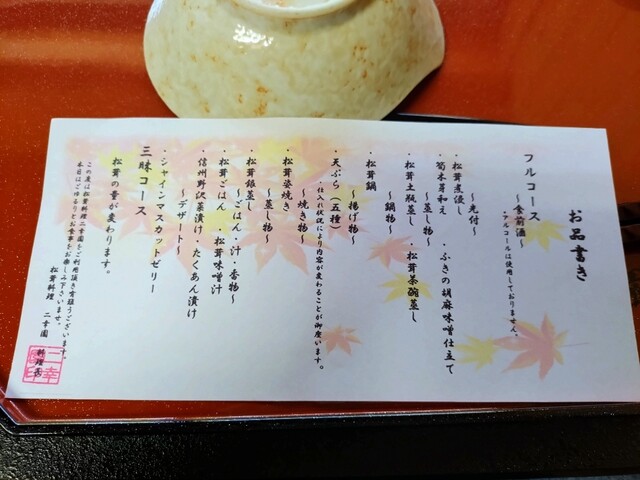 お品書き
フルコース
~食前酒~
・アルコールは使用しておりません。
~先付~
・松茸煮浸し
・菊木芽和え ・ふきの胡麻味噌仕立て
~蒸し物~
・松茸土瓶蒸し ・松茸茶碗蒸し
~鍋物~
・松茸鍋
~揚げ物~
・天ぷら(五種)
・仕入れ状況により内容が変わることが御座います。
~焼き物~
・松茸姿焼き
~蒸し物~
・松茸銀蒸し
~ごはん・汁・香物~
・松茸ごはん ・松茸味噌汁
・信州野沢菜漬け・たくあん漬け
~デザート~
・シャインマスカットゼリー
三昧コース
松茸の量が変わります。
この度は松茸料理二幸園をご利用頂き有難うございます。
本日はごゆるりとお食事をお楽しみ下さいませ。
松茸料理 二幸園